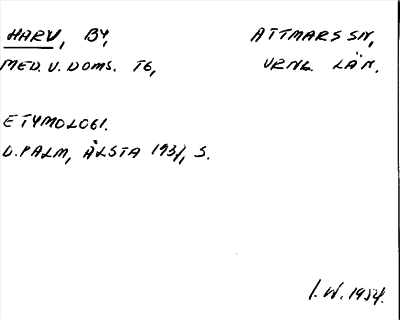 HARV, BY, ATTMARS SN,
MED. V. DOMS. TG, VRNL. LÄN.
ETYMOLOGI.
D. PALM, ÄLSTA 1931, S.
I. W. 1954.